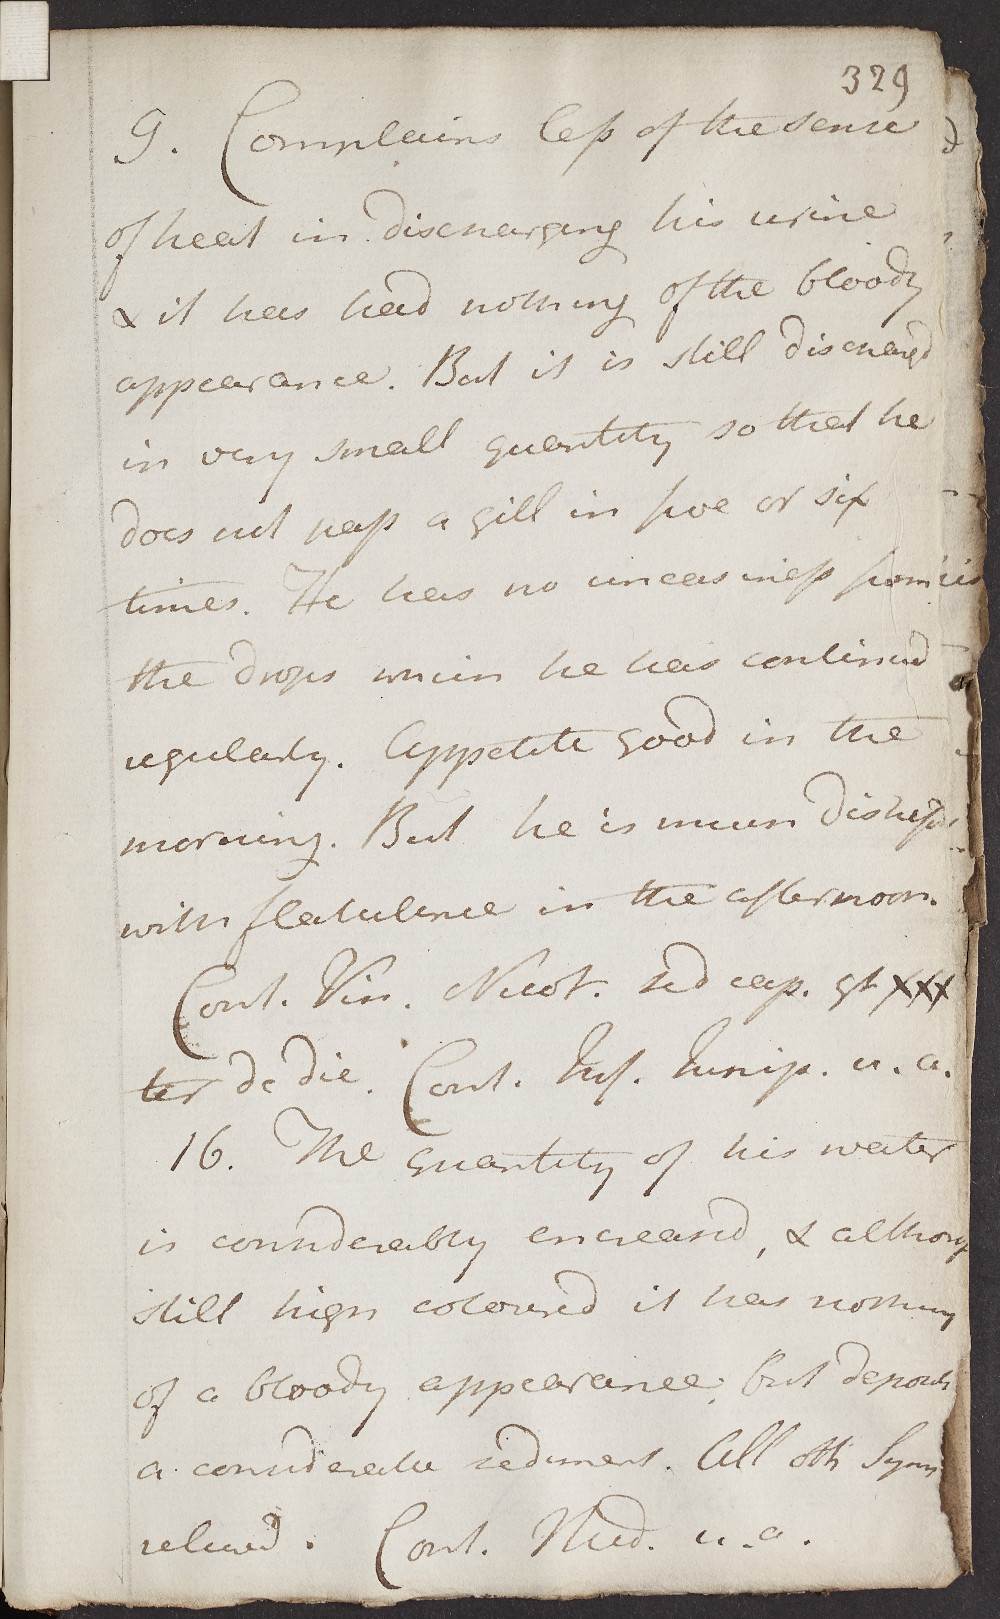 329
9. Complains less of the sense
of heat in discharging his urine
& it has had nothing of the bloody
appearance. But it is still dischargd
in very small quantity so that he
does not pass a gill in five or six
times. He has no uneasiness from
the drops which he has continued
regularly. Appetite good in the
morning. But he is much distressd
with flatulence in the afternoon.
Cont. Vin. Nicot. sed cap. gt xxx
ter de die. Cont. Inf. Junip. u. a.
16. The quantity of his water
is considerably encreased, & althoug
still high coloured it has nothing
of a bloody appearance, but deposits
a considerable sediment. All oth Sym
relieved. Cont. Med. u. a.